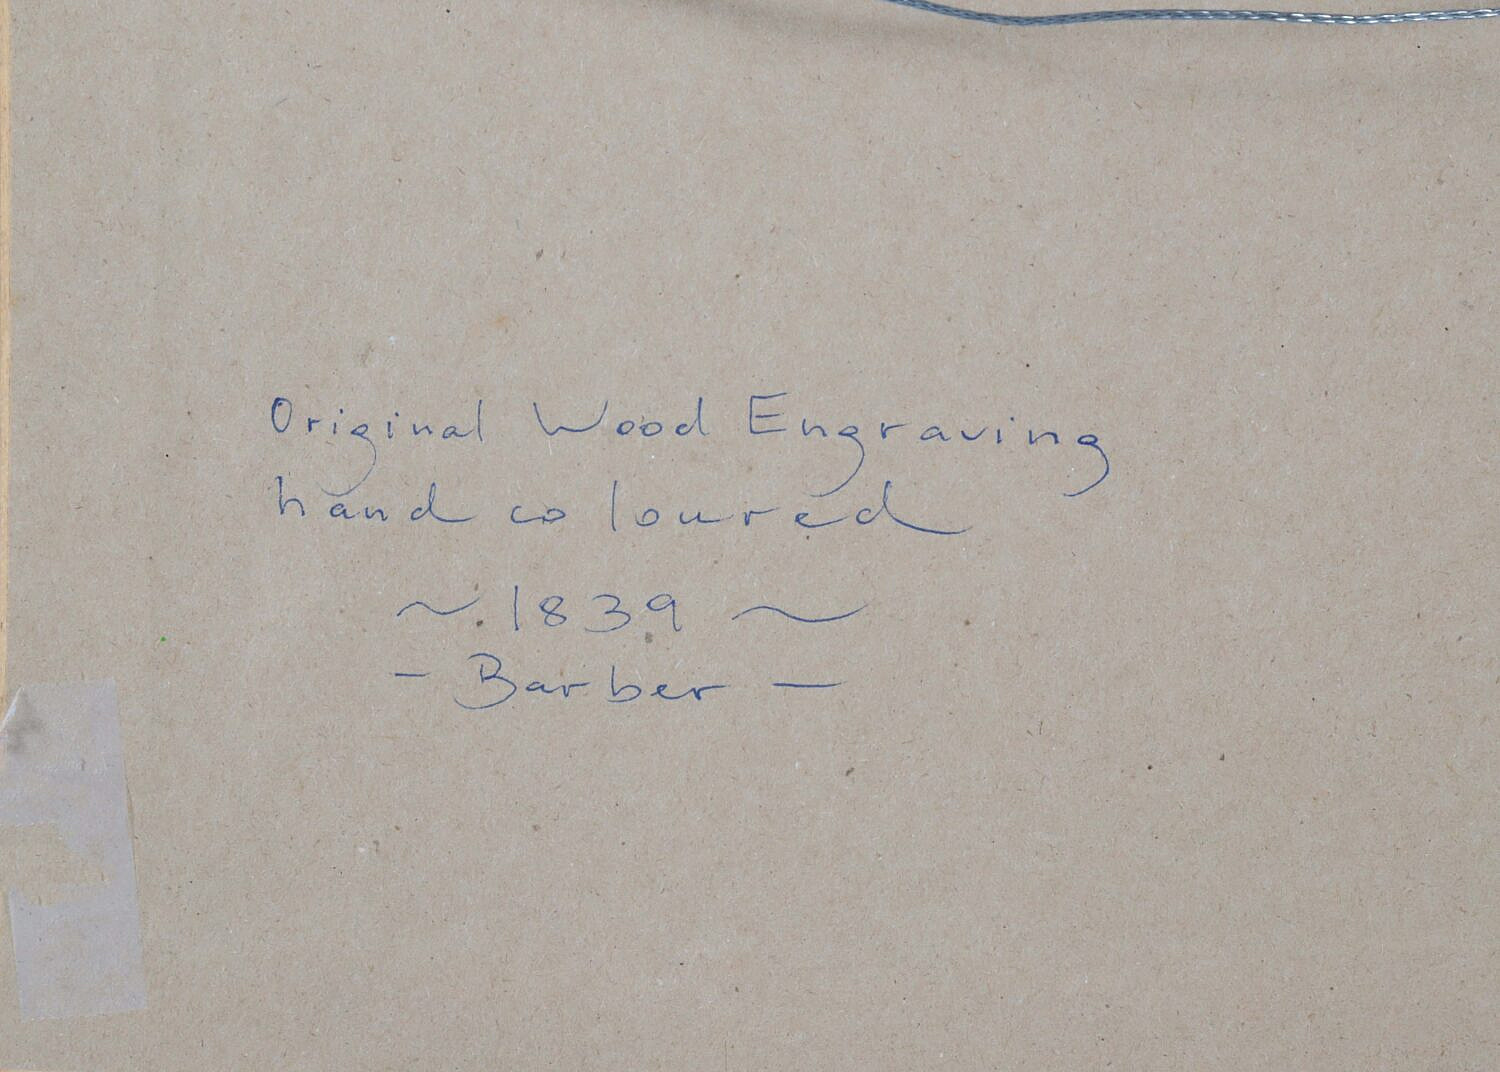 Original Wood Engraving
hand coloured
~ 1839 ~
- Barber -